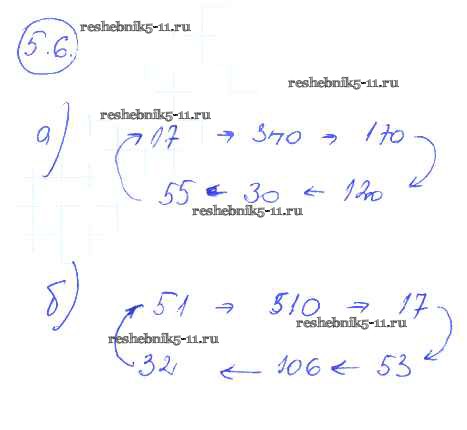 5.6.
reshebnik5-11.ru
reshebnik5-11.ru
reshebnik5-11.ru
а) → 17 → 340 → 170
55 ← 30 ← 120
reshebnik5-11.ru
б) → 51 → 510 → 17
reshebnik5-11.ru
reshebnik5-11.ru
32 ← 106 ← 53